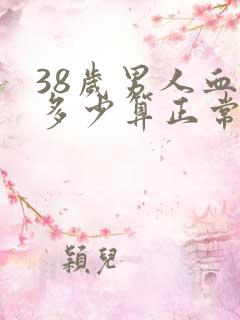 38歲男人血
多少算正常
穎兒